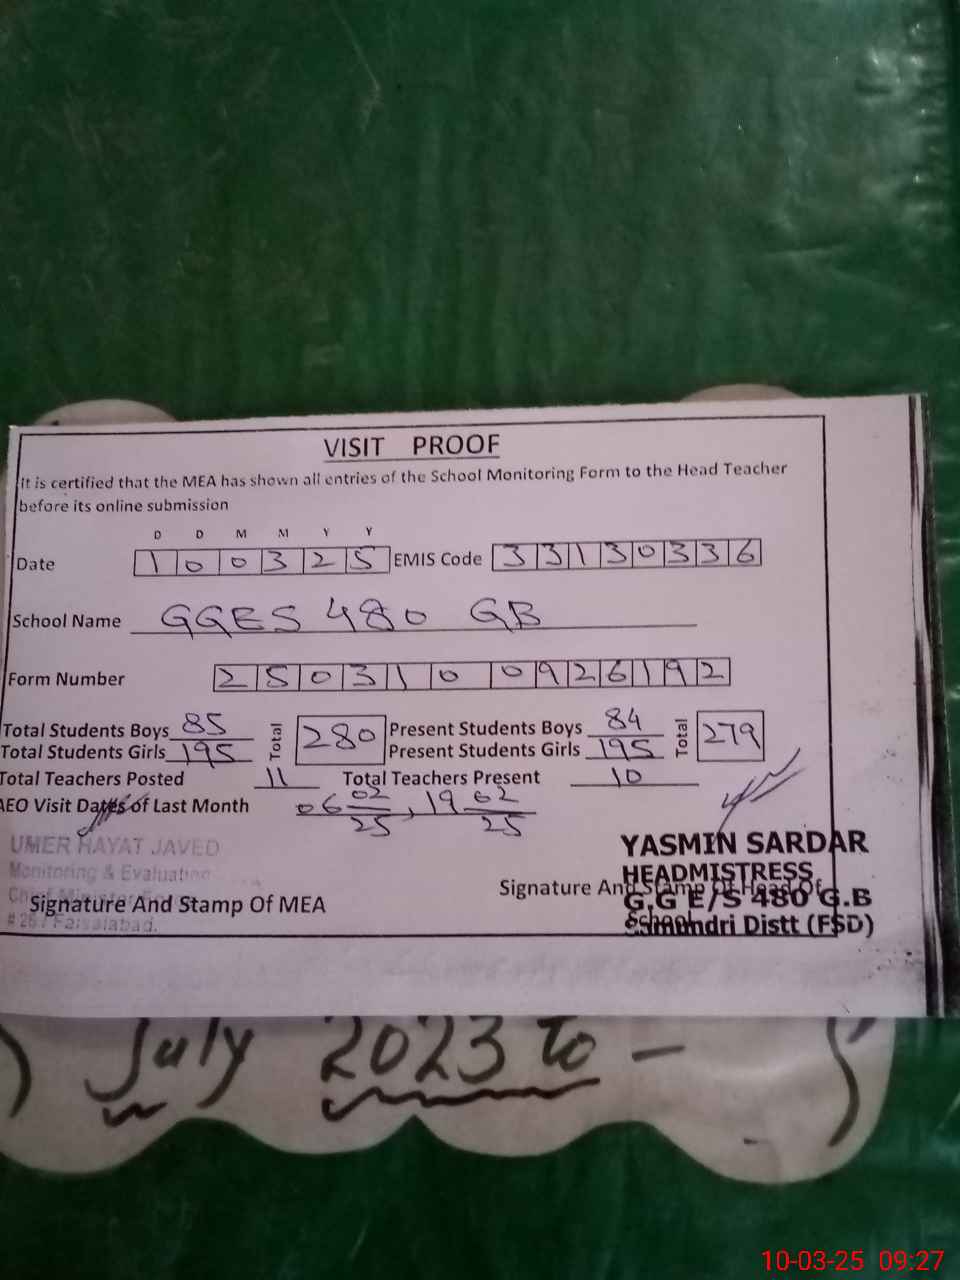 VISIT PROOF
It is certified that the MEA has shown all entries of the School Monitoring Form to the Head Teacher
before its online submission
D D M M Y Y
Date 1 0 0 3 2 5 EMIS Code 3 3 1 3 0 3 3 6
School Name GGES 480 GB
Form Number 2 5 0 3 1 0 0 9 2 6 1 9 2
Total Students Boys 85 Total 280 Present Students Boys 84 Total 279
Total Students Girls 195 Present Students Girls 195
Total Teachers Posted 11 Total Teachers Present 10
AEO Visit Dates of Last Month 06 02/25, 19 02/25
UMER HAYAT JAVED
Monitoring & Evaluation
Signature And Stamp Of MEA
Faisalabad.
YASMIN SARDAR
HEADMISTRESS
Signature And Stamp Of Head Of
G.G E/S 480 G.B
Distt (FSD)
July 2023 to -
10-03-25 09:27